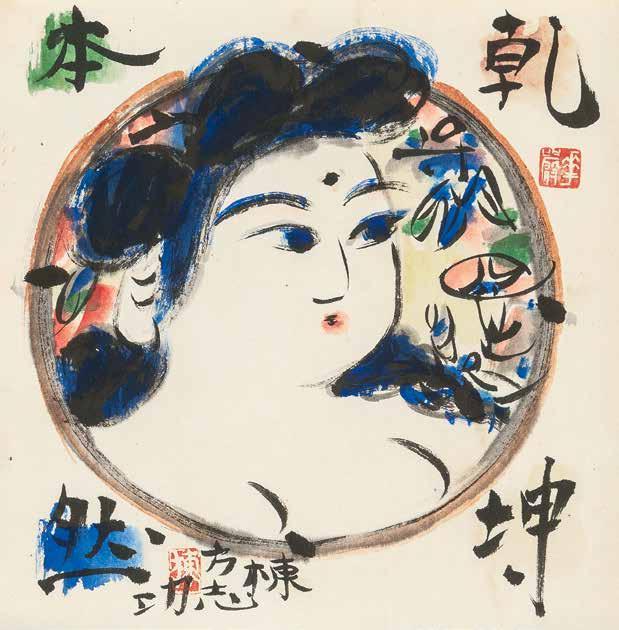 乾坤
華嚴
本然
棟方志功